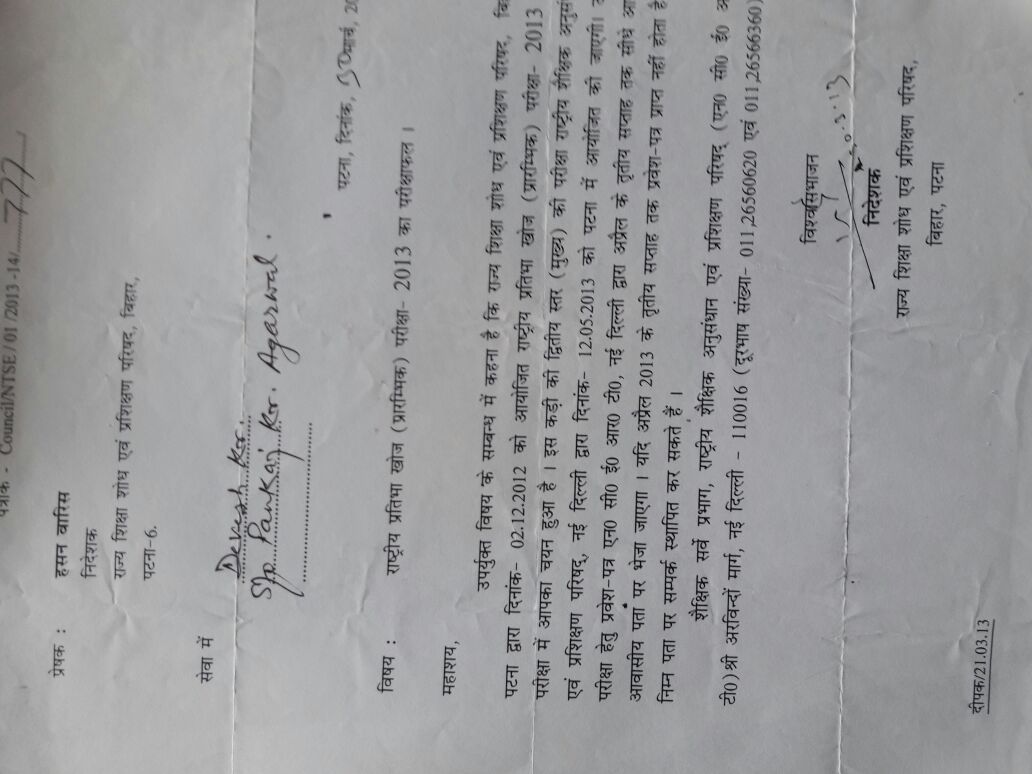 पत्रांक - Council/NTSE / 01 /2013 -14/ 777
प्रेषक :
हसन वारिस
निदेशक
राज्य शिक्षा शोध एवं प्रशिक्षण परिषद, बिहार,
पटना-6.
सेवा में
Devesh Kr.
S/o. Pankaj Kr. Agarwal.
पटना, दिनांक, मार्च, 20
विषय : राष्ट्रीय प्रतिभा खोज (प्रारम्भिक) परीक्षा- 2013 का परीक्षाफल ।
महाशय,
उपर्युक्त विषय के सम्बन्ध में कहना है कि राज्य शिक्षा शोध एवं प्रशिक्षण परिषद,
पटना द्वारा दिनांक- 02.12.2012 को आयोजित राष्ट्रीय प्रतिभा खोज (प्रारम्भिक) परीक्षा- 2013
परीक्षा में आपका चयन हुआ है । इस कड़ी की द्वितीय स्तर (मुख्य) की परीक्षा राष्ट्रीय शैक्षिक
एवं प्रशिक्षण परिषद्, नई दिल्ली द्वारा दिनांक- 12.05.2013 को पटना में आयोजित की जाएगी।
परीक्षा हेतु प्रवेश-पत्र एन0 सी0 ई0 आर0 टी0, नई दिल्ली द्वारा अप्रैल के तृतीय सप्ताह तक सीधे
आवासीय पता पर भेजा जाएगा । यदि अप्रैल 2013 के तृतीय सप्ताह तक प्रवेश-पत्र प्राप्त नहीं होता है
निम्न पता पर सम्पर्क स्थापित कर सकते हैं ।
शैक्षिक सर्वे प्रभाग, राष्ट्रीय शैक्षिक अनुसंधान एवं प्रशिक्षण परिषद् (एन0 सी0 ई0
टी0)श्री अरविन्दों मार्ग, नई दिल्ली - 110016 (दूरभाष संख्या- 011,26560620 एवं 011,26566360)
विश्वासभाजन
निदेशक
राज्य शिक्षा शोध एवं प्रशिक्षण परिषद,
बिहार, पटना
दीपक/21.03.13